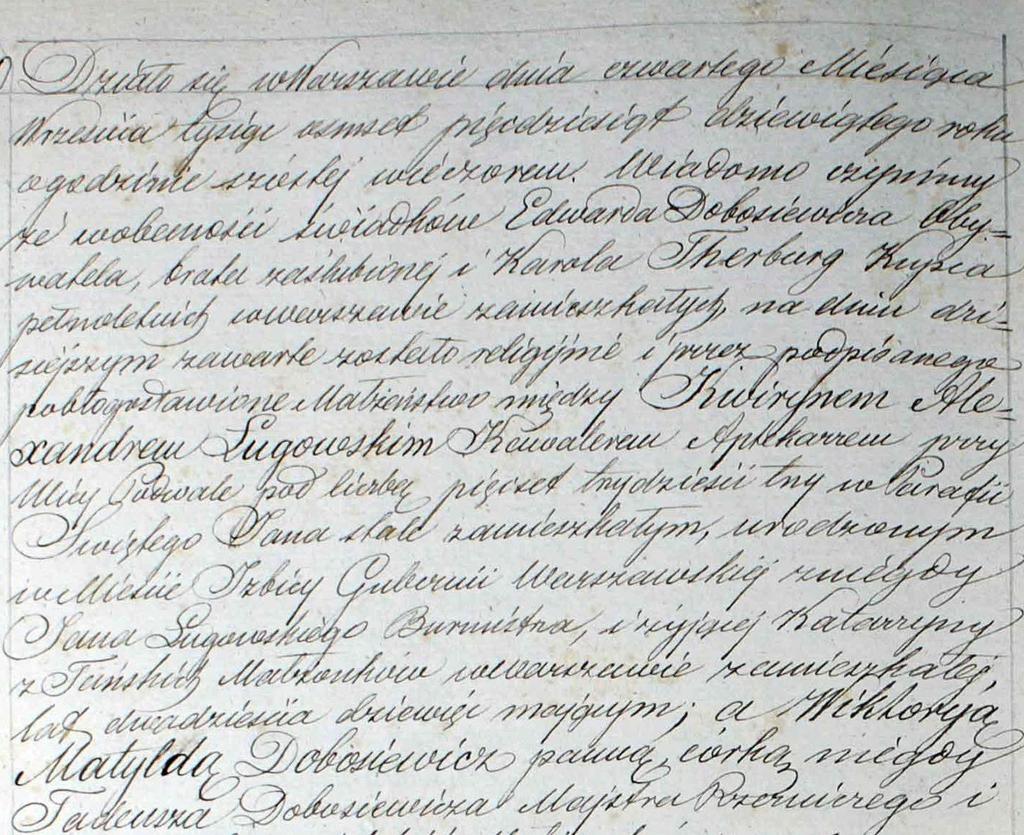 Działo się w Warszawie dnia czwartego Miesiąca
Września tysiąc osmset pięćdziesiąt dziewiątego roku
o godzinie szóstej wieczorem. Wiadomo czynimy
że w obecności świadków Edwarda Dobosiewicza Oby=
watela, brata zaślubionej i Karola Therburg Kupca
pełnoletnich w Warszawie zamieszkałych, na dniu dzi=
siejszym zawarte zostało religijne i przez podpisanego
pobłogosławione Małżeństwo między Kwirynem Ale=
xandrem Ługowskim Kawalerem Aptekarzem przy
Ulicy Podwale pod liczbą pięćset trzydzieści trzy w Parafii
Świętego Jana stale zamieszkałym, urodzonym
w Mieście Izbicy Gubernii Warszawskiej z niegdy
Jana Ługowskiego Burmistrza, i żyjącej Katarzyny
z Tańskich Małżonków w Warszawie zamieszkałej,
lat dwadzieścia dziewięć mającym; a Wiktoryją
Matyldą Dobosiewicz panną, córką niegdy
Tadeusza Dobosiewicza Majstra Rzeźniczego i